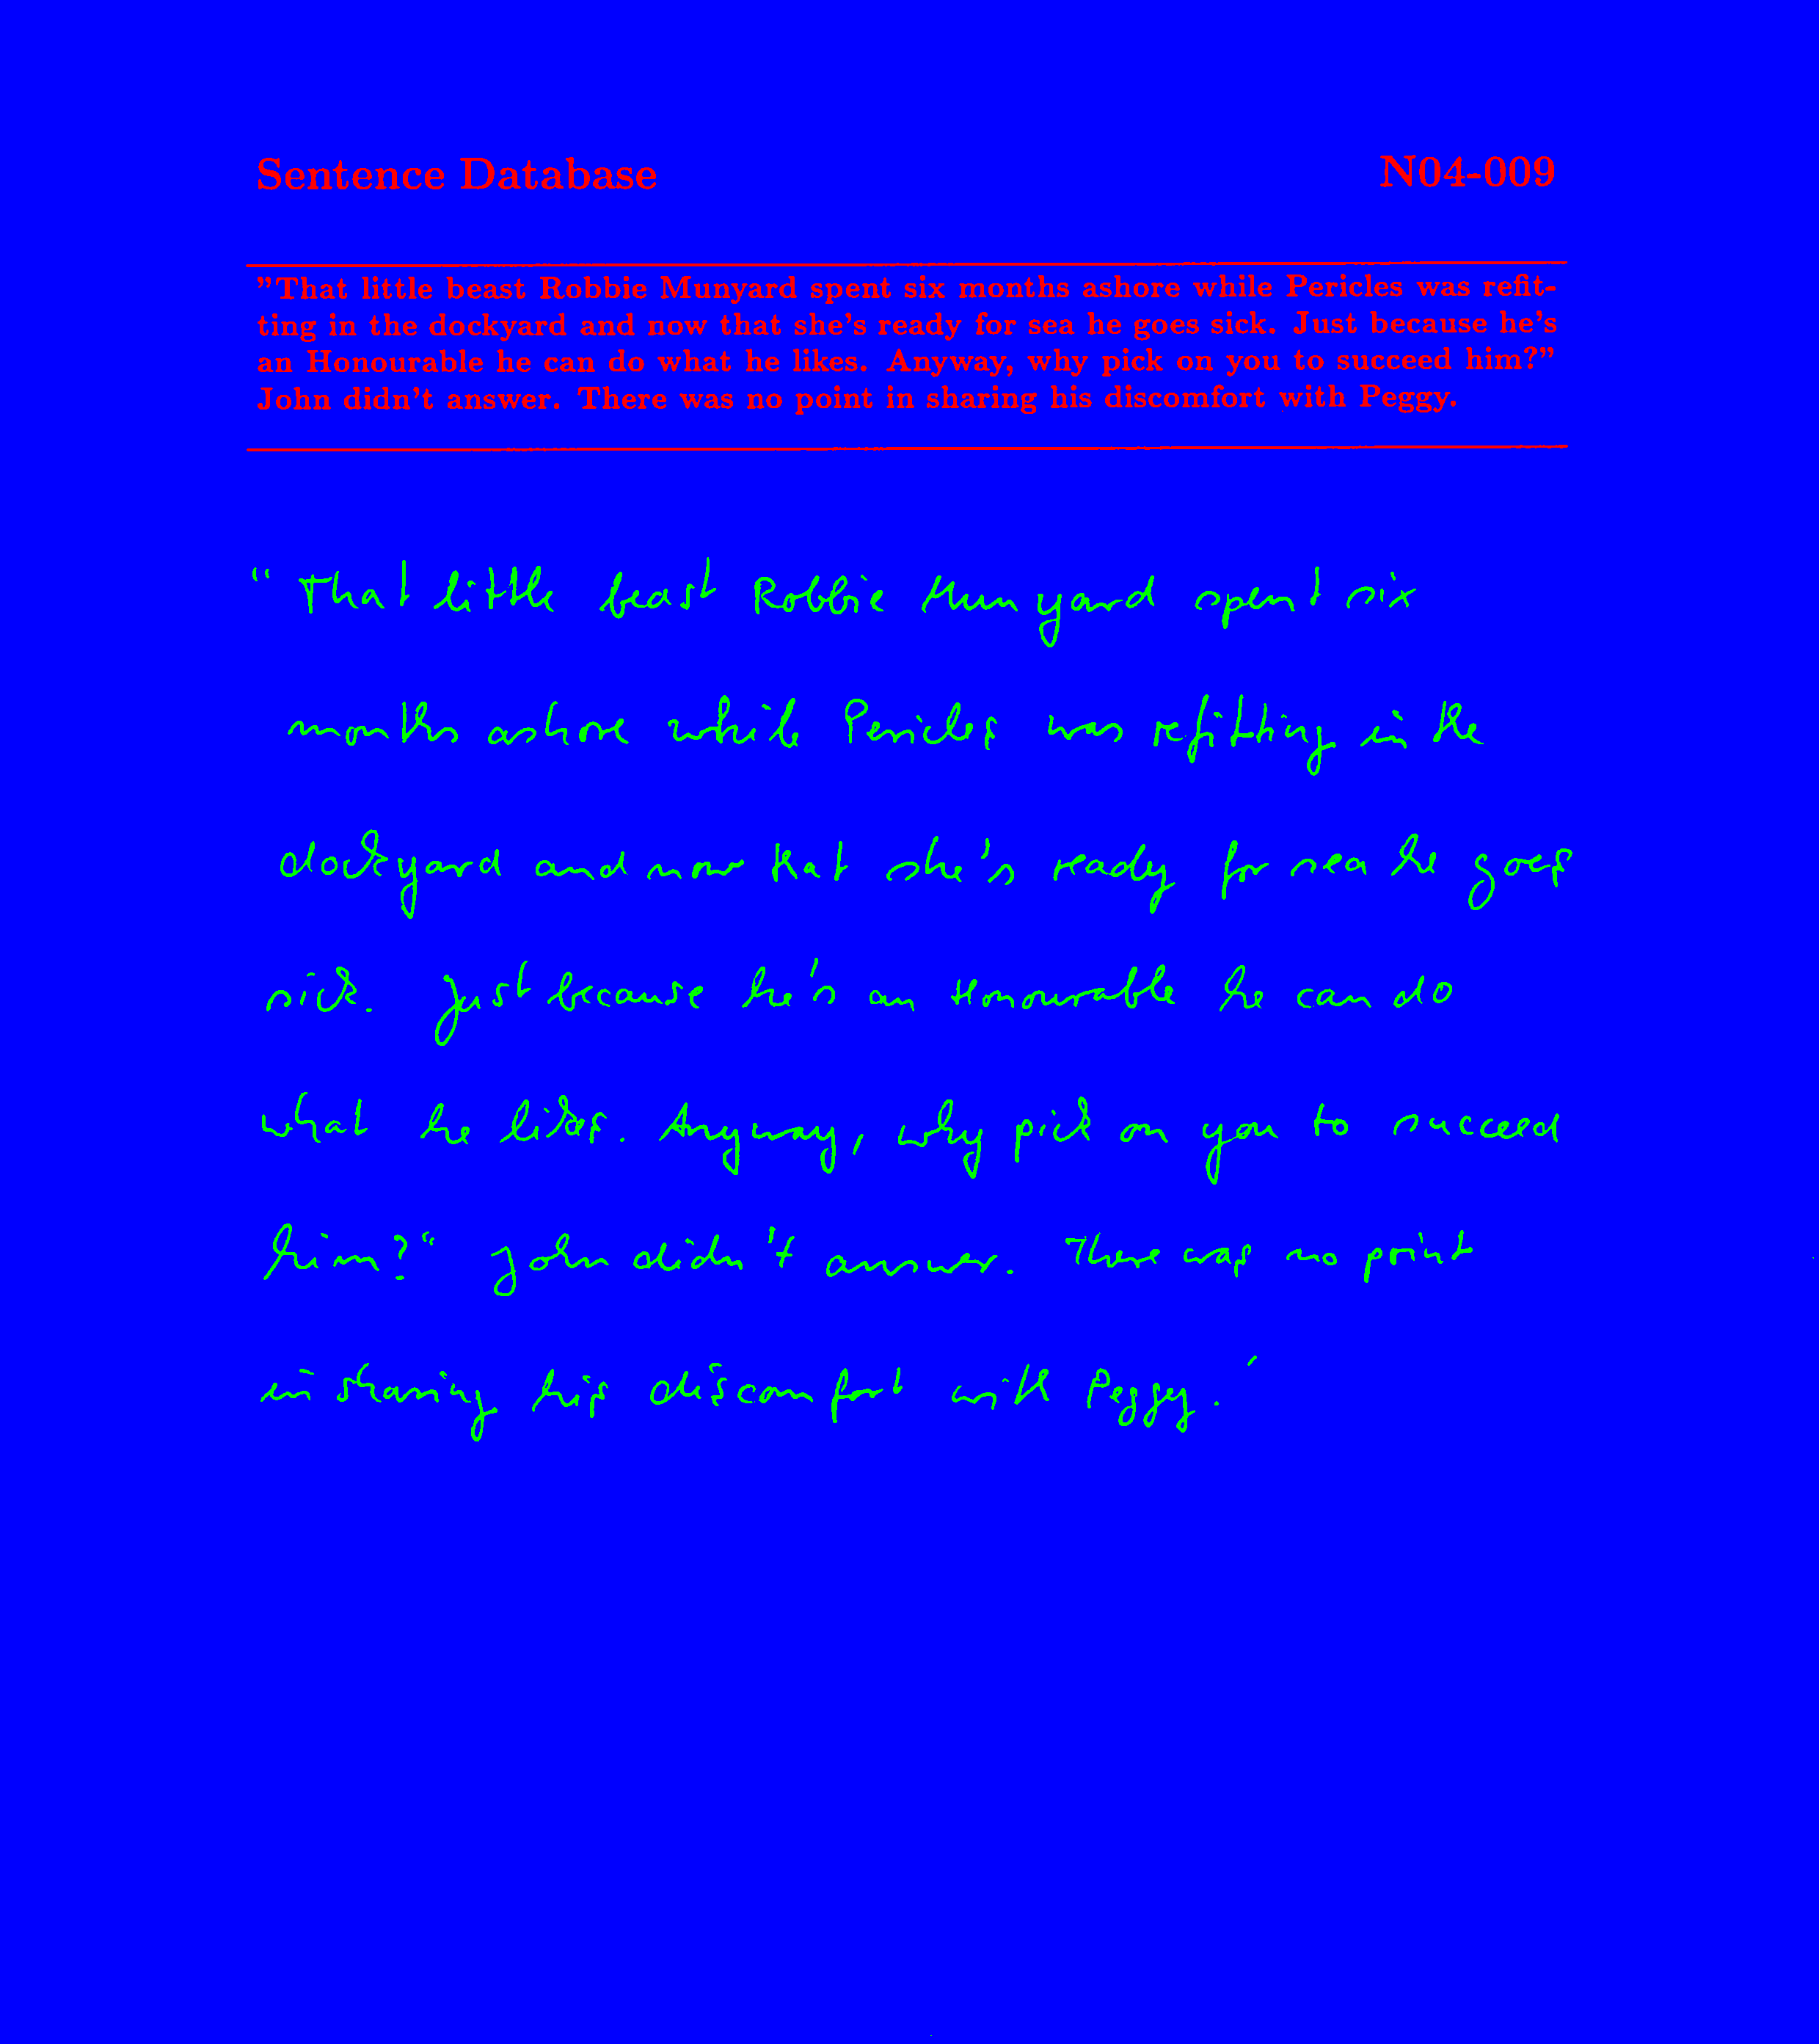 Sentence Database N04-009
"That little beast Robbie Munyard spent six months ashore while Pericles was refit-
ting in the dockyard and now that she's ready for sea he goes sick. Just because he's
an Honourable he can do what he likes. Anyway, why pick on you to succeed him?"
John didn't answer. There was no point in sharing his discomfort with Peggy.
"That little beast Robbie Munyard spent six
months ashore while Pericles was refitting in the
dockyard and now that she's ready for sea he goes
sick. Just because he's an Honourable he can do
what he likes. Anyway, why pick on you to succeed
him?" John didn't answer. There was no point
in sharing his discomfort with Peggy.'